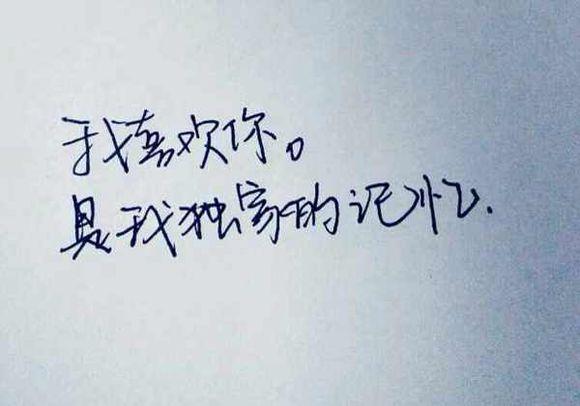 我喜欢你。
是我独家的记忆.